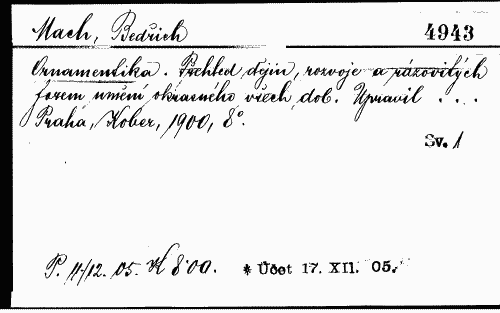 Mach, Bedřich
4943
Ornamentika. Přehled dějin, rozvoje a rázovitých
forem umění okrasného všech dob. Upravil . . .
Praha, Kober, 1900, 8°.
Sv. 1
P. 11/12. 05. K 8·00.
* Účet 17. XII. 05.